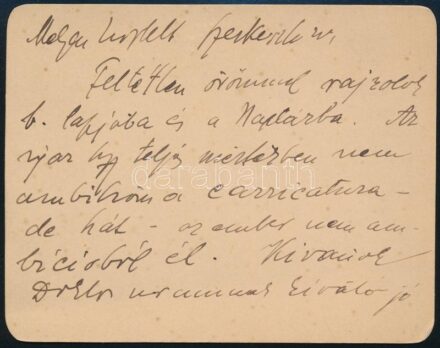 Mélyen tisztelt Szerkesztő úr,
Feltétlen örömmel rajzolok
b. lapjába és a Naptárba. Az
igaz hogy teljes mértékben nem
ambitiom a carricatura –
de hát – az ember nem am-
bícióból él. Kívánok
Doktor uramnak kiváló jó
darabanth